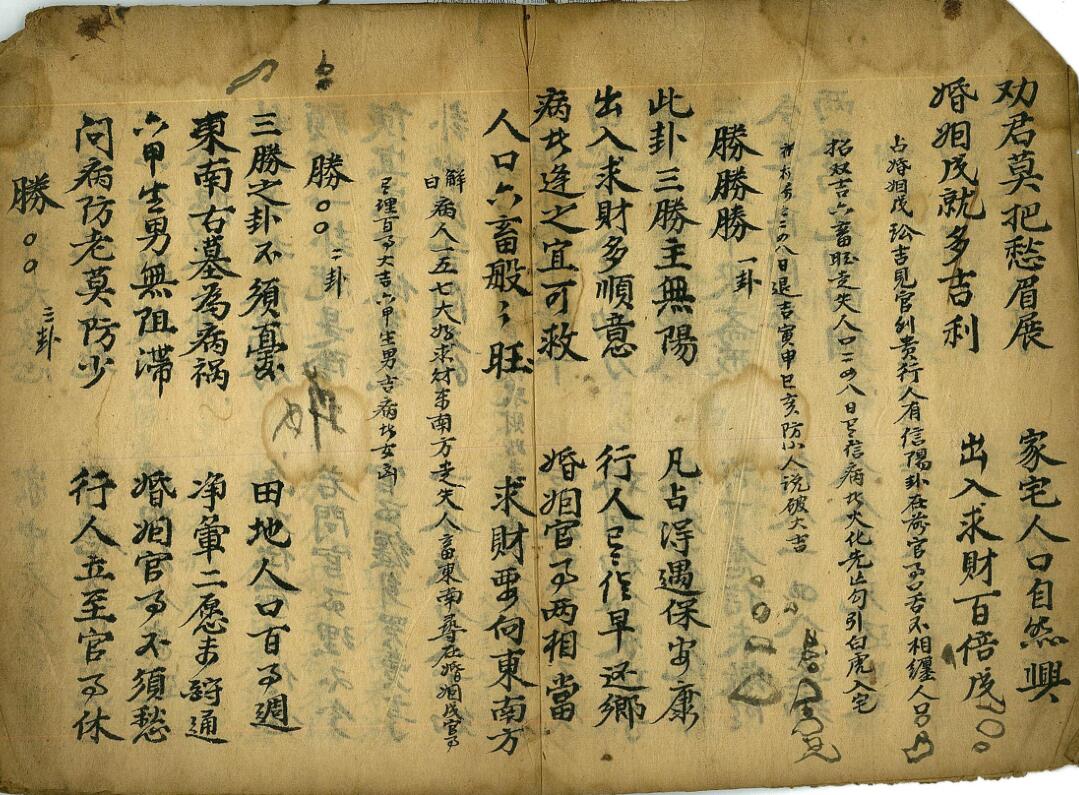 劝君莫把愁眉展 家宅人口自然興
婚姻成就多吉利 出入求財百倍成
占婚姻成 訟吉見官利贵行人有信陽卦在前官事口舌不相纏人口
招双吉六畜旺走失人口二四八日 信病 火化先 勾引白虎入宅
二四八日退吉寅申巳亥防小人说破大吉
勝勝勝 一卦
此卦三勝主無陽 凡占得遇保安康
出入求財多順意 行人 信早还鄉
病 逢之宜可救 婚姻官事两相當
人口六畜般々旺 求財要向東南方
解曰 病人一五七大 求財東南方走失人畜東南尋在婚姻成官事
理百事大吉六甲生男吉病 女 
勝○○ 二卦
三勝之卦不須 田地人口百事週
東南古墓為病祸 净 二愿未 通
六甲生男無阻滞 婚姻官事不須愁
问病防老莫防少 行人立至官事休
勝○○ 三卦